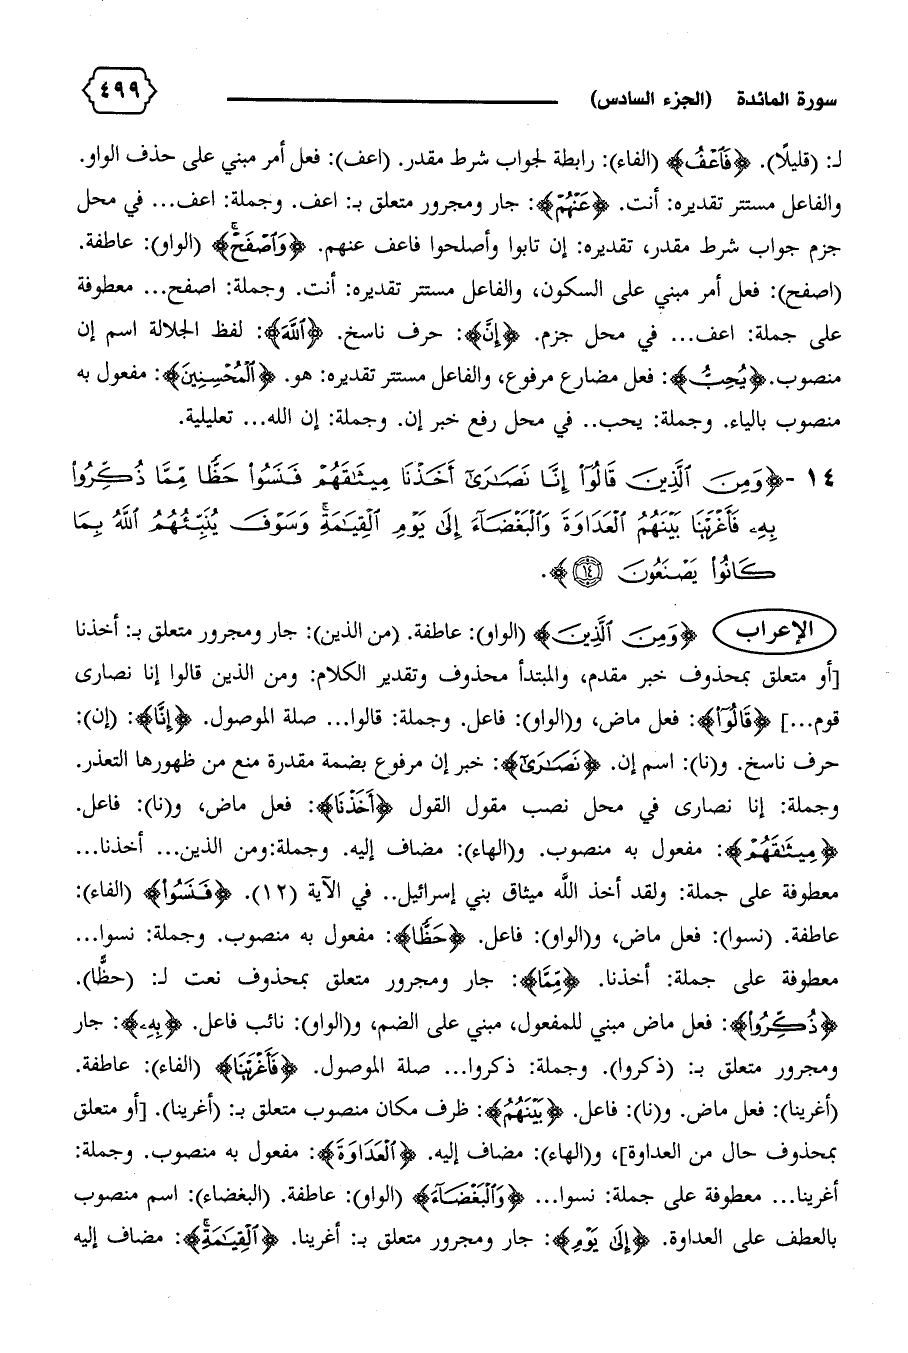 سورة المائدة (الجزء السادس) ٤٩٩
لـ: (قليلًا). ﴿فَٱعۡفُ﴾ (الفاء): رابطة لجواب شرط مقدر. (اعف): فعل أمر مبني على حذف الواو.
والفاعل مستتر تقديره: أنت. ﴿عَنۡهُمۡ﴾: جار ومجرور متعلق بـ: اعف. وجملة: اعف... في محل
جزم جواب شرط مقدر، تقديره: إن تابوا وأصلحوا فاعف عنهم. ﴿وَٱصۡفَحۡۚ﴾ (الواو): عاطفة.
(اصفح): فعل أمر مبني على السكون، والفاعل مستتر تقديره: أنت. وجملة: اصفح... معطوفة
على جملة: اعف... في محل جزم. ﴿إِنَّ﴾: حرف ناسخ. ﴿ٱللَّهَ﴾: لفظ الجلالة اسم إن
منصوب. ﴿يُحِبُّ﴾: فعل مضارع مرفوع، والفاعل مستتر تقديره: هو. ﴿ٱلۡمُحۡسِنِينَ﴾: مفعول به
منصوب بالياء. وجملة: يحب.. في محل رفع خبر إن. وجملة: إن الله... تعليلية.
١٤ -﴿وَمِنَ ٱلَّذِينَ قَالُوٓاْ إِنَّا نَصَٰرَىٰٓ أَخَذۡنَا مِيثَٰقَهُمۡ فَنَسُواْ حَظّٗا مِّمَّا ذُكِّرُواْ
بِهِۦ فَأَغۡرَيۡنَا بَيۡنَهُمُ ٱلۡعَدَاوَةَ وَٱلۡبَغۡضَآءَ إِلَىٰ يَوۡمِ ٱلۡقِيَٰمَةِۚ وَسَوۡفَ يُنَبِّئُهُمُ ٱللَّهُ بِمَا
كَانُواْ يَصۡنَعُونَ ١٤﴾.
الإعراب ﴿وَمِنَ ٱلَّذِينَ﴾ (الواو): عاطفة. (من الذين): جار ومجرور متعلق بـ: أخذنا
[أو متعلق بمحذوف خبر مقدم، والمبتدأ محذوف وتقدير الكلام: ومن الذين قالوا إنا نصارى
قوم...] ﴿قَالُوٓاْ﴾: فعل ماض، و(الواو): فاعل. وجملة: قالوا... صلة الموصول. ﴿إِنَّا﴾: (إن):
حرف ناسخ. و(نا): اسم إن. ﴿نَصَٰرَىٰٓ﴾: خبر إن مرفوع بضمة مقدرة منع من ظهورها التعذر.
وجملة: إنا نصارى في محل نصب مقول القول ﴿أَخَذۡنَا﴾: فعل ماض، و(نا): فاعل.
﴿مِيثَٰقَهُمۡ﴾: مفعول به منصوب. و(الهاء): مضاف إليه. وجملة:ومن الذين... أخذنا...
معطوفة على جملة: ولقد أخذ اللَّه ميثاق بني إسرائيل.. في الآية (١٢). ﴿فَنَسُواْ﴾ (الفاء):
عاطفة. (نسوا): فعل ماض، و(الواو): فاعل. ﴿حَظّٗا﴾: مفعول به منصوب. وجملة: نسوا...
معطوفة على جملة: أخذنا. ﴿مِّمَّا﴾: جار ومجرور متعلق بمحذوف نعت لـ: (حظًّا).
﴿ذُكِّرُواْ﴾: فعل ماض مبني للمفعول، مبني على الضم، و(الواو): نائب فاعل. ﴿بِهِۦ﴾: جار
ومجرور متعلق بـ: (ذكروا). وجملة: ذكروا... صلة الموصول. ﴿فَأَغۡرَيۡنَا﴾ (الفاء): عاطفة.
(أغرينا): فعل ماض. و(نا): فاعل. ﴿بَيۡنَهُمُ﴾: ظرف مكان منصوب متعلق بـ: (أغرينا). [أو متعلق
بمحذوف حال من العداوة]، و(الهاء): مضاف إليه. ﴿ٱلۡعَدَاوَةَ﴾: مفعول به منصوب. وجملة:
أغرينا... معطوفة على جملة: نسوا... ﴿وَٱلۡبَغۡضَآءَ﴾ (الواو): عاطفة. (البغضاء): اسم منصوب
بالعطف على العداوة. ﴿إِلَىٰ يَوۡمِ﴾: جار ومجرور متعلق بـ: أغرينا. ﴿ٱلۡقِيَٰمَةِۚ﴾: مضاف إليه